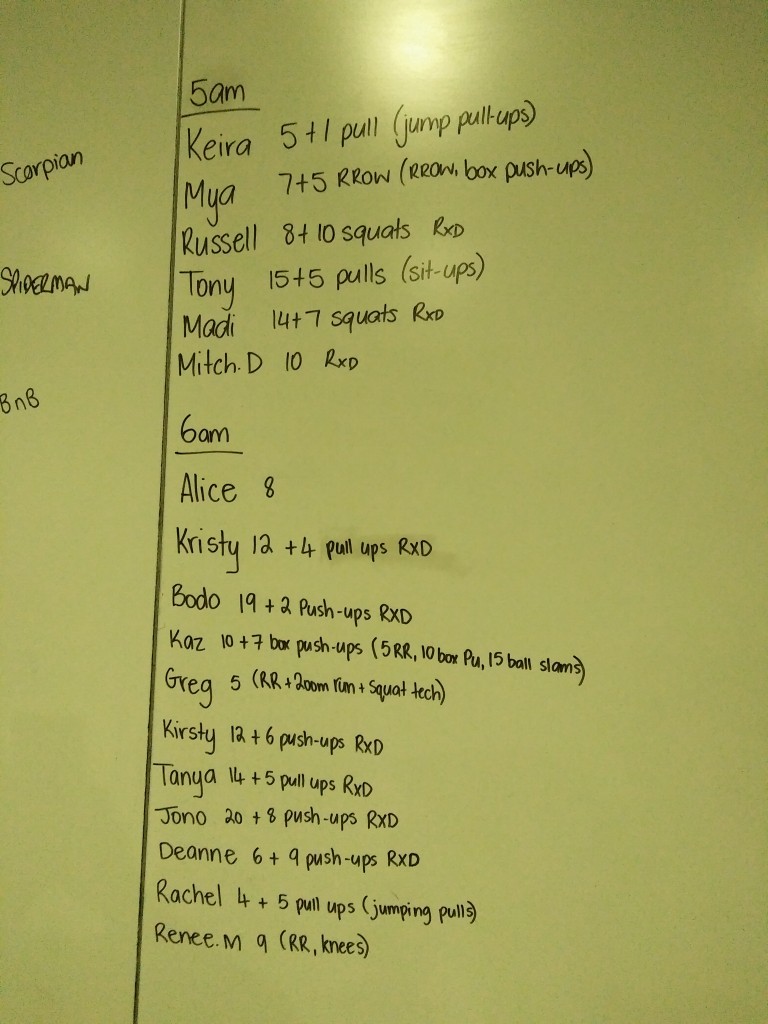 Scorpian
SPIDERMAN
BnB
5am
Keira 5+1 pull (jump pull-ups)
Mya 7+5 RROW (RROW, box push-ups)
Russell 8+10 squats RxD
Tony 15+5 pulls (sit-ups)
Madi 14+7 squats RxD
Mitch.D 10 RxD
6am
Alice 8
Kristy 12 +4 pull ups RXD
Bodo 19 + 2 Push-ups RXD
Kaz 10+7 box push-ups (5RR, 10 box Pu, 15 ball slams)
Greg 5 (RR+200m run+squat tech)
Kirsty 12 + 6 push-ups RxD
Tanya 14 + 5 pull ups RxD
Jono 20 + 8 push-ups RXD
Deanne 6 + 9 push-ups RXD
Rachel 4 + 5 pull ups (jumping pulls)
Renee.M 9 (RR, knees)